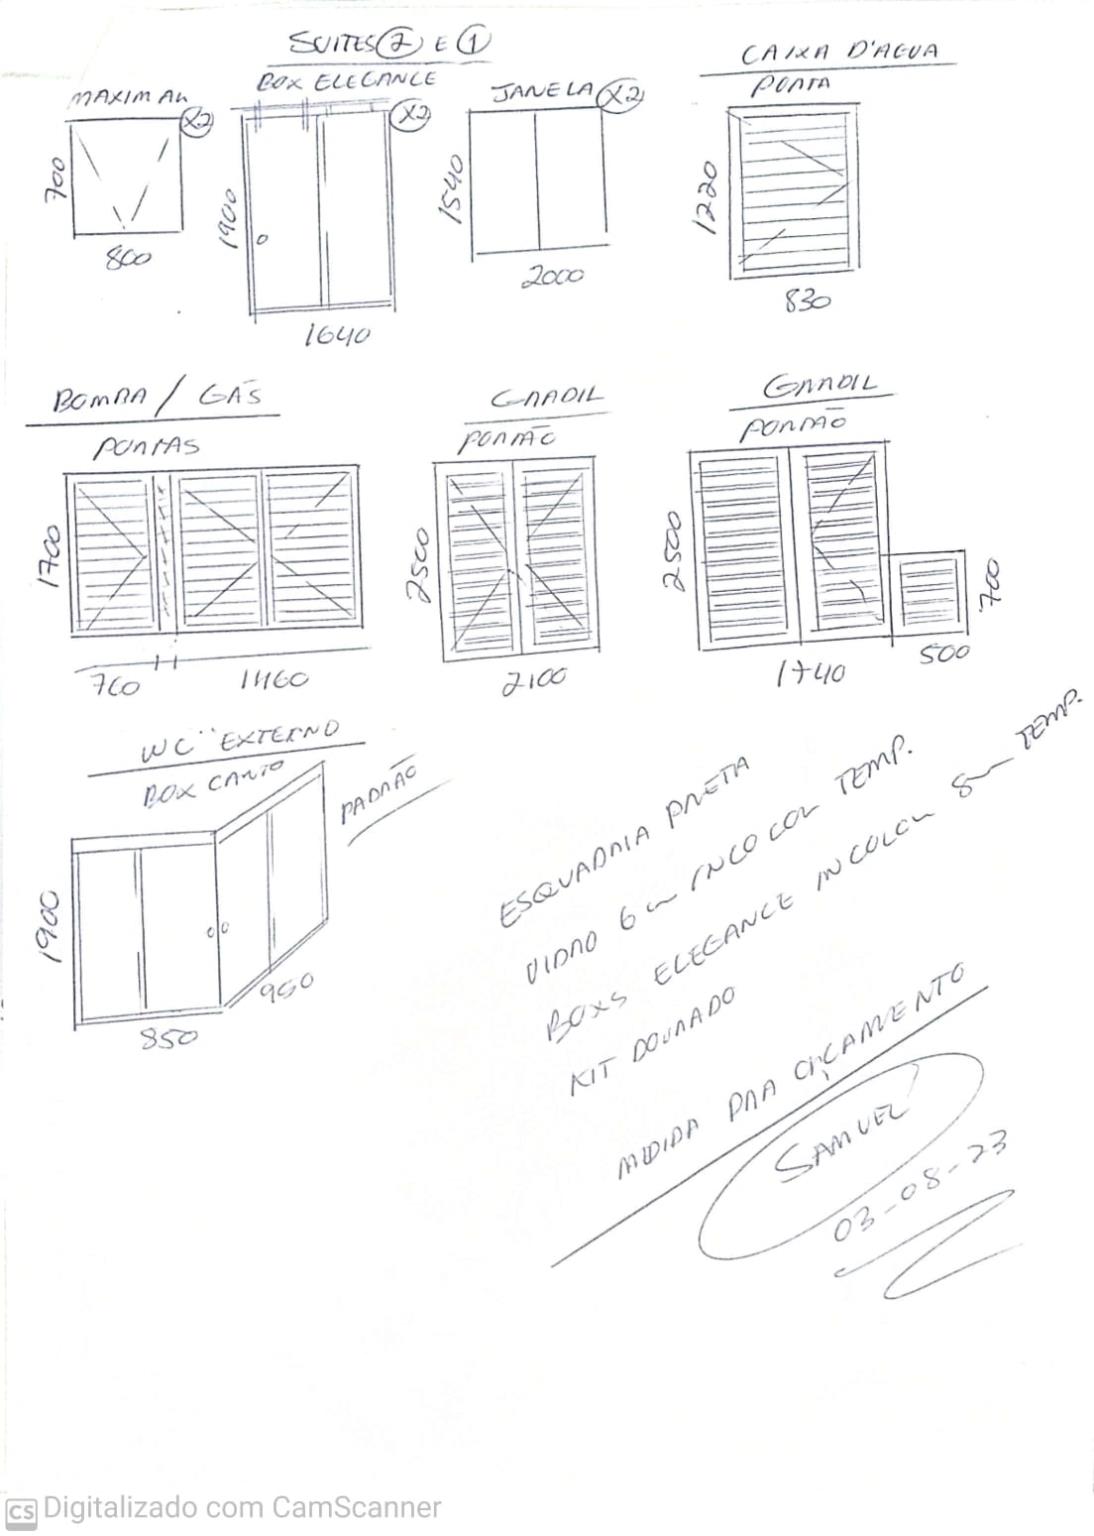 SUITES 2 E 1
MAXIM AR
X2
BOX ELEGANCE
X2
JANELA X2
CAIXA D'AGUA
PORTA
700
800
1900
1640
1540
2000
1220
830
BOMBA / GÁS
PORTAS
1700
760
1460
GRADIL
PORTÃO
2500
2100
GRADIL
PORTÃO
2500
1740
700
500
WC EXTERNO
BOX CANTO
PADRÃO
1900
850
950
ESQUADRIA PRETA
VIDRO 6 INCOLOR TEMP.
BOXS ELEGANCE INCOLOR 8 TEMP.
KIT DOURADO
MEDIDA PRA ORÇAMENTO
SAMUEL
03-08-23
CS Digitalizado com CamScanner